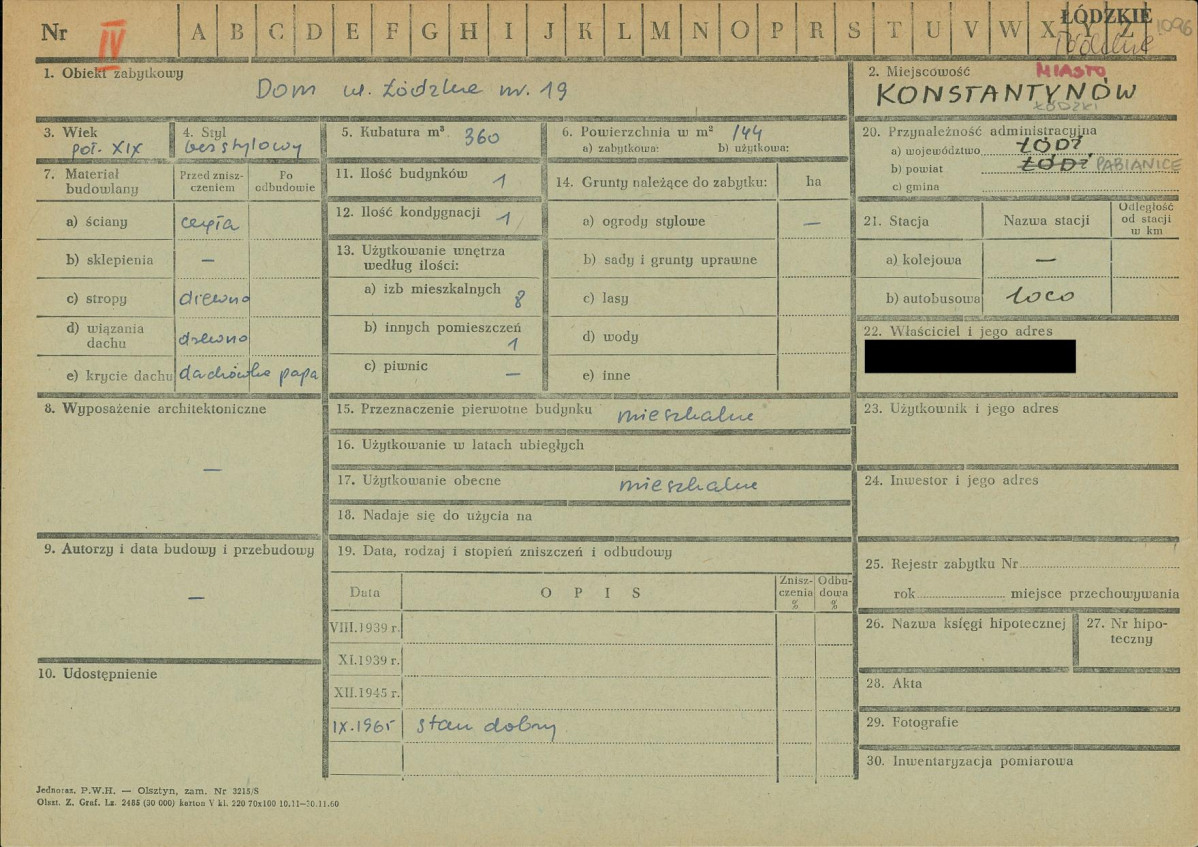 Nr IV A B C D E F G H I J K L M N O P R S T U V W X Y Z ŁÓDZKIE
1096
1. Obiekt zabytkowy
Dom ul. Łódzka nr. 19
2. Miejscowość MIASTO
KONSTANTYNÓW
ŁÓDZKI
3. Wiek
poł. XIX
4. Styl
bezstylowy
5. Kubatura m³ 360
6. Powierzchnia w m² 144
a) zabytkowa: b) użytkowa:
20. Przynależność administracyjna
a) województwo ŁÓDŹ
b) powiat ŁÓDŹ PABIANICE
c) gmina
7. Materiał budowlany
Przed zniszczeniem
Po odbudowie
a) ściany cegła
b) sklepienia —
c) stropy drewno
d) wiązania dachu drewno
e) krycie dachu dachówka papa
11. Ilość budynków 1
12. Ilość kondygnacji 1
13. Użytkowanie wnętrza
według ilości:
a) izb mieszkalnych 8
b) innych pomieszczeń 1
c) piwnic —
14. Grunty należące do zabytku: ha
a) ogrody stylowe —
b) sady i grunty uprawne
c) lasy
d) wody
e) inne
21. Stacja Nazwa stacji Odległość od stacji w km
a) kolejowa —
b) autobusowa loco
22. Właściciel i jego adres
8. Wyposażenie architektoniczne
—
15. Przeznaczenie pierwotne budynku mieszkalne
16. Użytkowanie w latach ubiegłych
17. Użytkowanie obecne mieszkalne
18. Nadaje się do użycia na
23. Użytkownik i jego adres
24. Inwestor i jego adres
9. Autorzy i data budowy i przebudowy
—
10. Udostępnienie
19. Data, rodzaj i stopień zniszczeń i odbudowy
Data O P I S Zniszczenia % Odbudowa %
VIII.1939 r.
XI.1939 r.
XII.1945 r.
IX.1965 stan dobry
25. Rejestr zabytku Nr
rok miejsce przechowywania
26. Nazwa księgi hipotecznej
27. Nr hipoteczny
28. Akta
29. Fotografie
30. Inwentaryzacja pomiarowa
Jednoraz. P.W.H. — Olsztyn, zam. Nr 3215/S
Olszt. Z. Graf. Lz. 2485 (30 000) karton V kl. 220 70x100 10.11—30.11.60